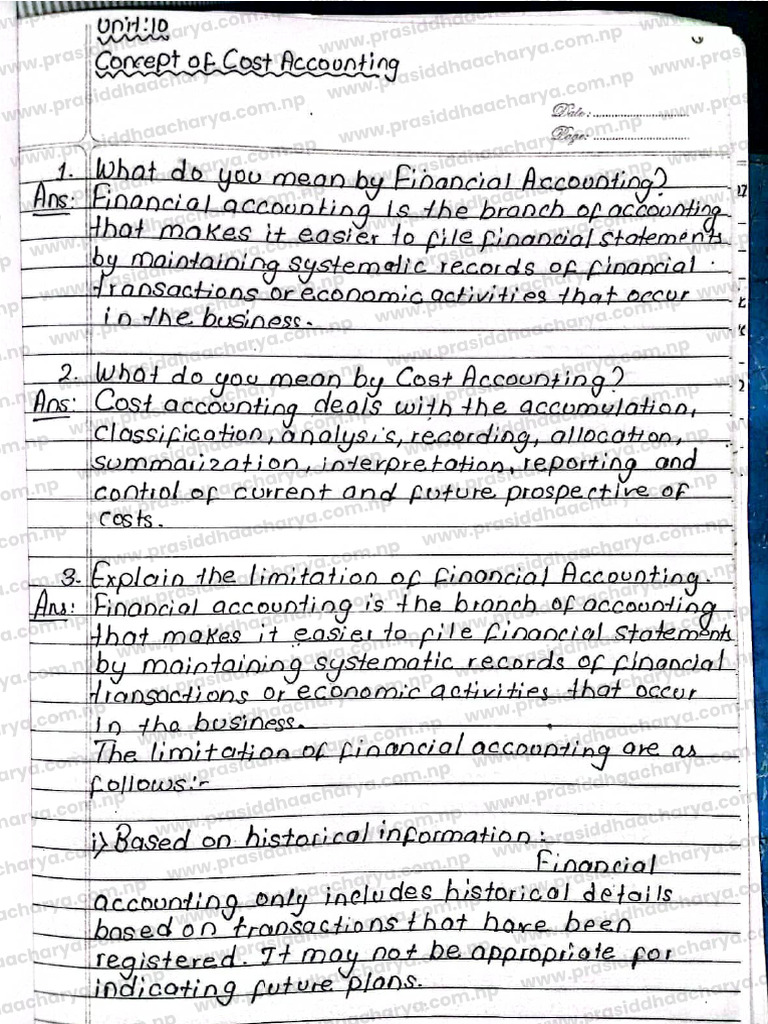 Unit:10
Concept of Cost Accounting
Date:
Page:
1. What do you mean by Financial Accounting?
Ans: Financial accounting is the branch of accounting
that makes it easier to file financial statements
by maintaining systematic records of financial
transactions or economic activities that occur
in the business.
2. What do you mean by Cost Accounting?
Ans: Cost accounting deals with the accumulation,
classification, analysis, recording, allocation,
summarization, interpretation, reporting and
control of current and future prospective of
costs.
3. Explain the limitation of financial Accounting.
Ans: Financial accounting is the branch of accounting
that makes it easier to file financial statements
by maintaining systematic records of financial
transactions or economic activities that occur
in the business.
The limitation of financial accounting are as
follows:-
i) Based on historical information:
Financial
accounting only includes historical details
based on transactions that have been
registered. It may not be appropriate for
indicating future plans.
www.prasiddhaacharya.com.np